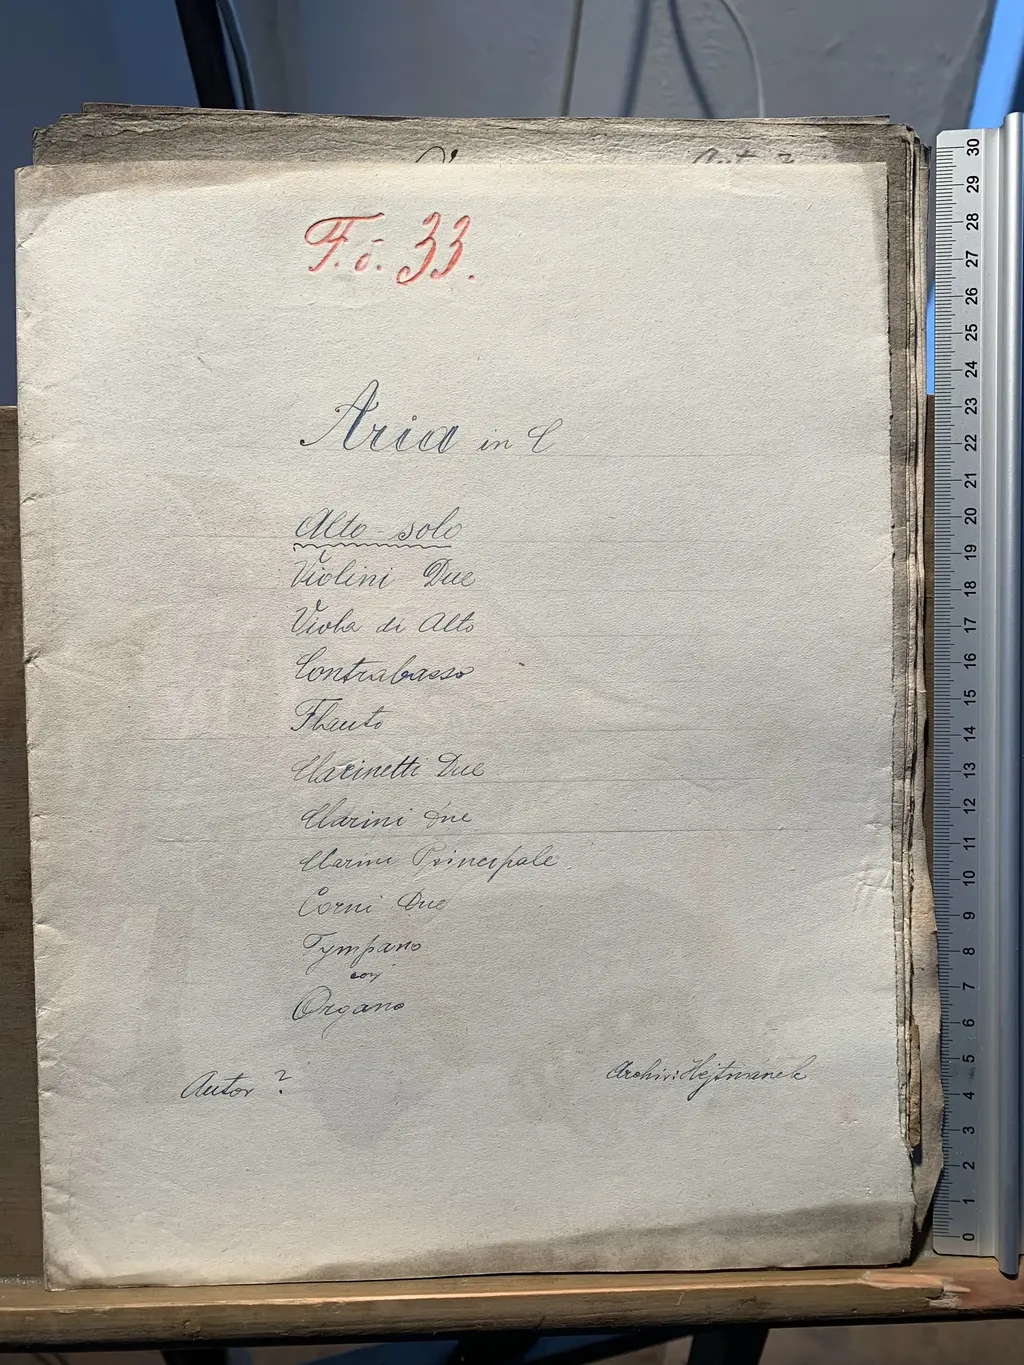 F. č. 33.
Aria in C
Alto solo
Violini Due
Viola di Alto
Contrabasso
Flauto
Clarinetti Due
Clarini Due
Clarini Principale
Corni Due
Tympano
con
Organo
Autor ?
Archiv: Hejtmánek
30
29
28
27
26
25
24
23
22
21
20
19
18
17
16
15
14
13
12
11
10
9
8
7
6
5
4
3
2
1
0